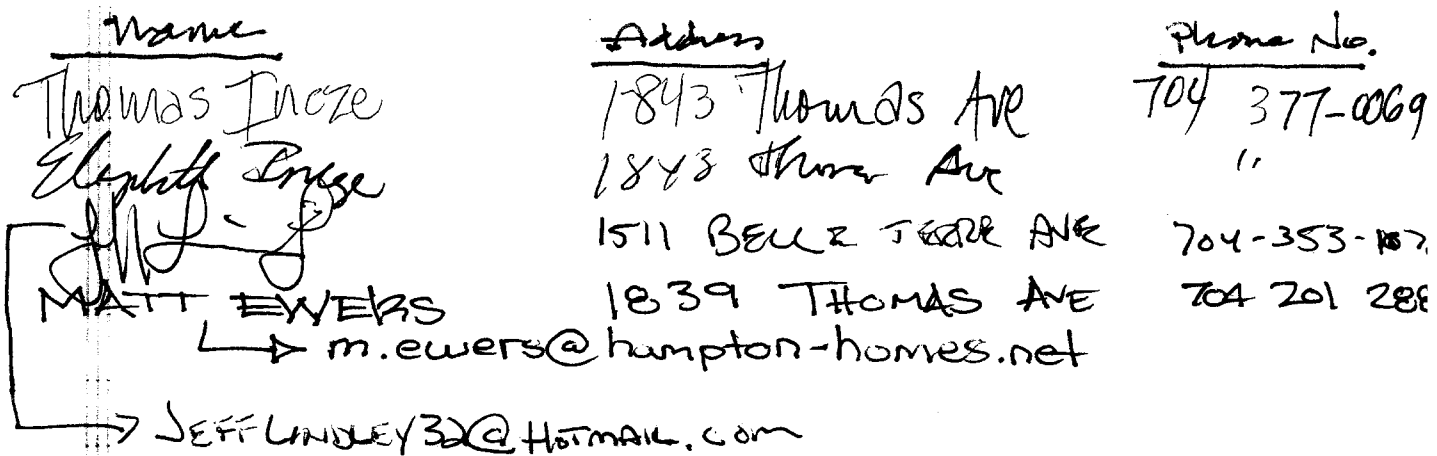 Name Address Phone No.
Thomas Incze 1843 Thomas Ave 704 377-0069
Elizabeth Incze 1843 Thomas Ave "
1511 BELLE TERRE AVE 704-353-
MATT EWERS 1839 THOMAS AVE 704 201 288
m.ewers@hampton-homes.net
JEFFLINDLEY32@HOTMAIL.COM